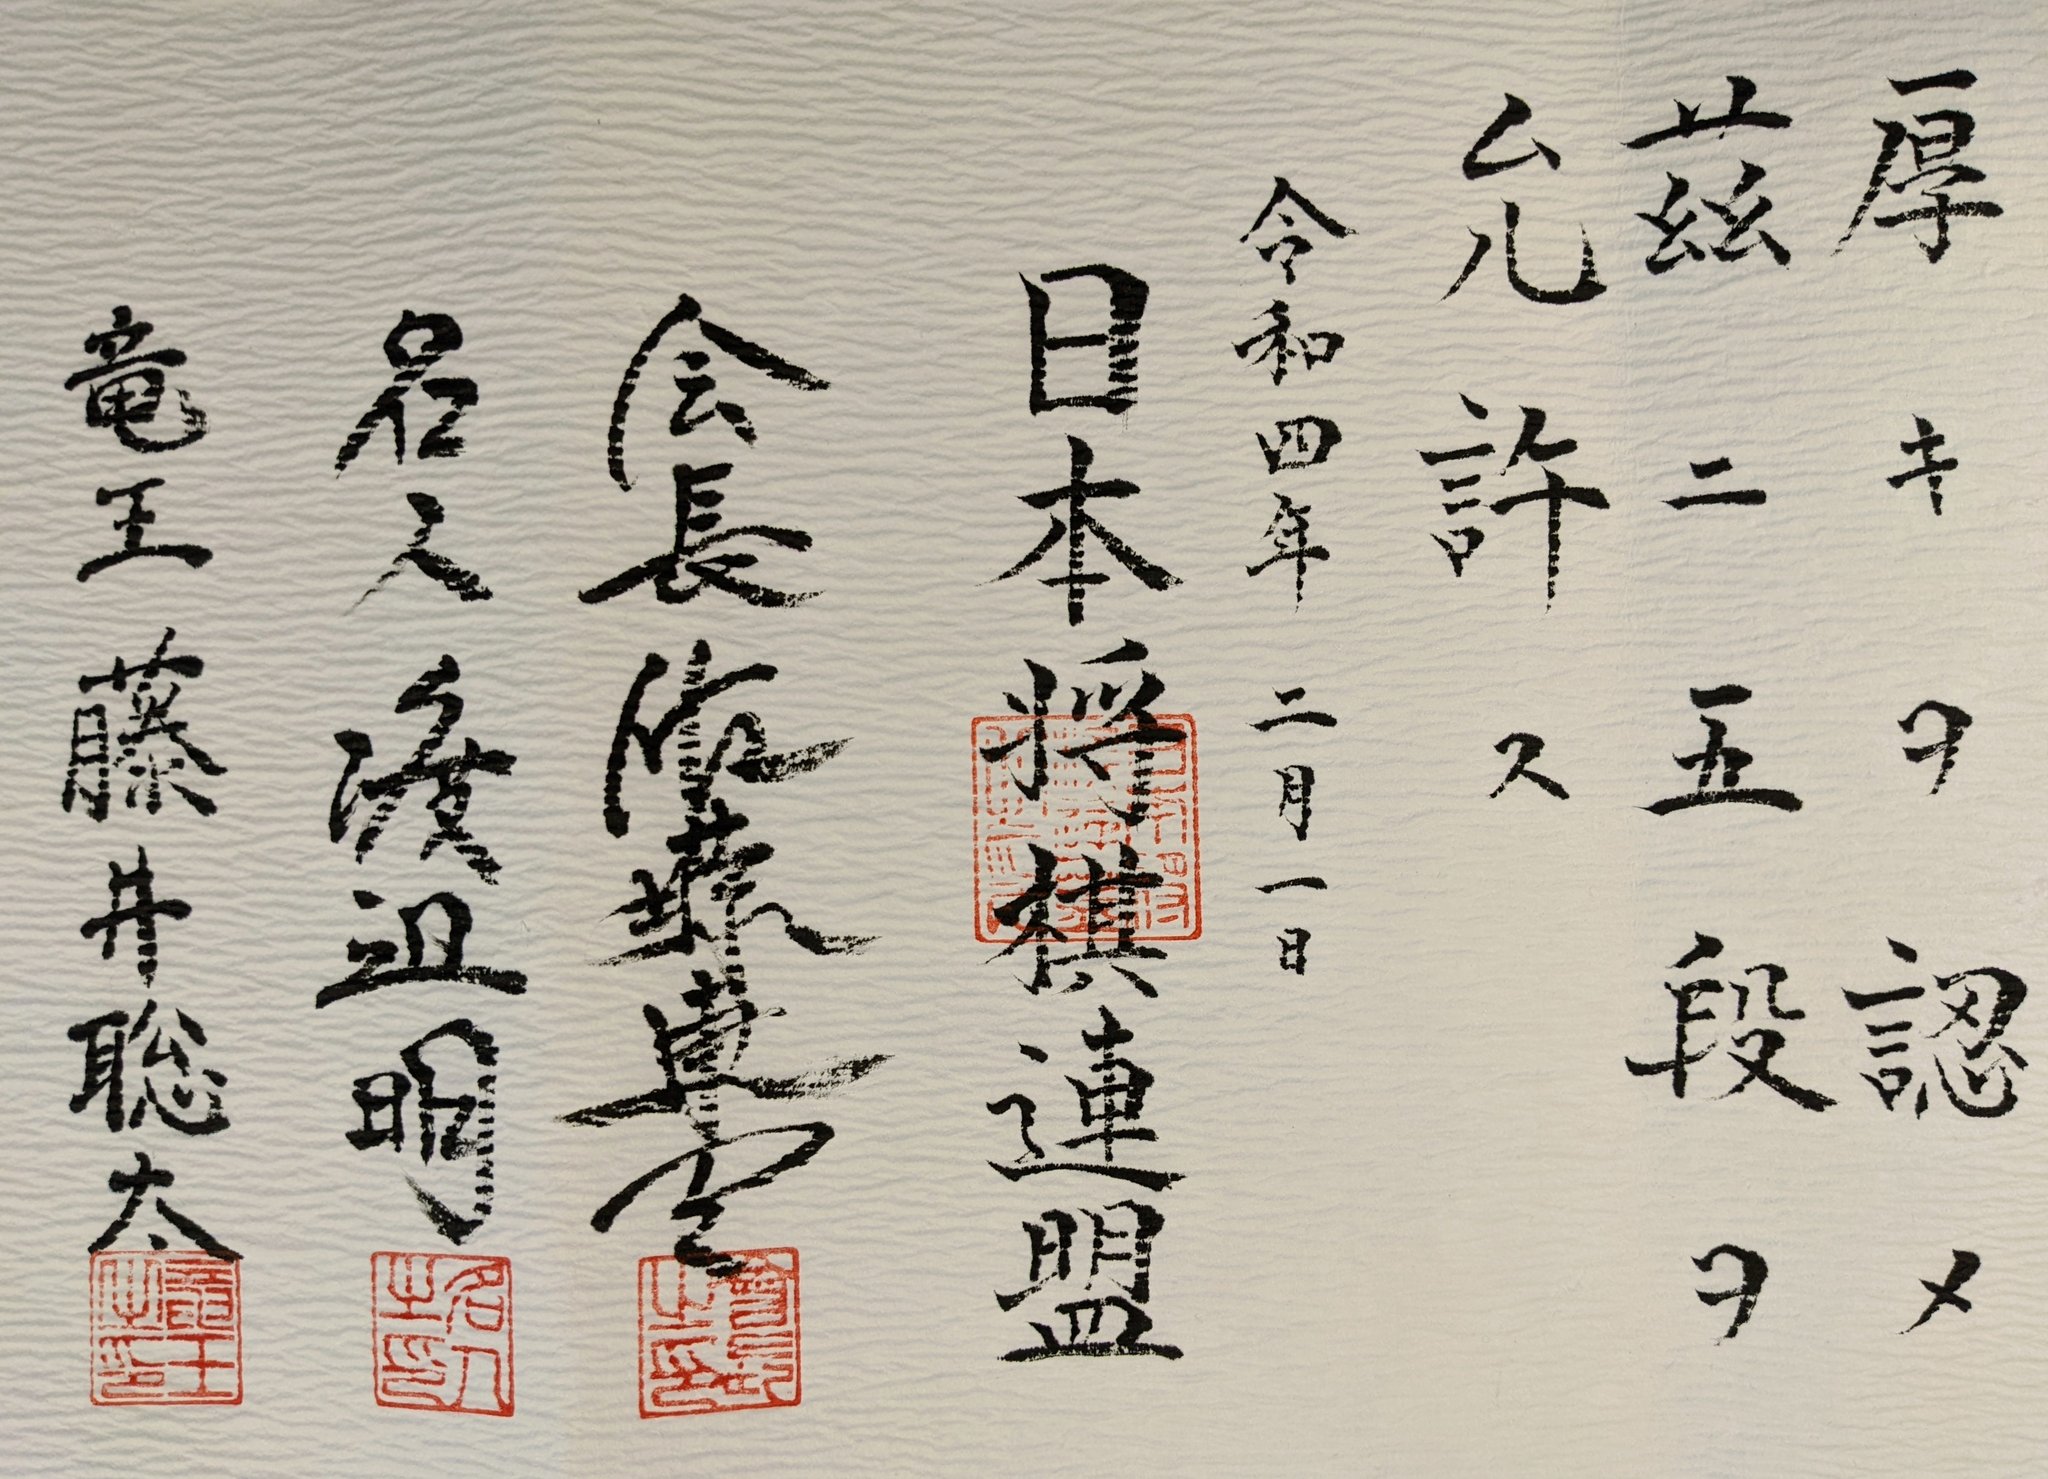 厚キヲ認メ
茲ニ五段ヲ
允許ス
令和四年二月一日
日本将棋連盟
会長佐藤康光
名人渡辺明
竜王藤井聡太